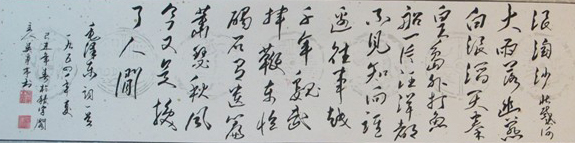 浪淘沙 北戴河
大雨落幽燕
白浪滔天秦
皇岛外打鱼
船一片汪洋都
不见知向谁
边往事越
千年魏武
挥鞭东临
碣石有遗篇
萧瑟秋风
今又是换
了人间
毛泽东词意
一九五四年夏